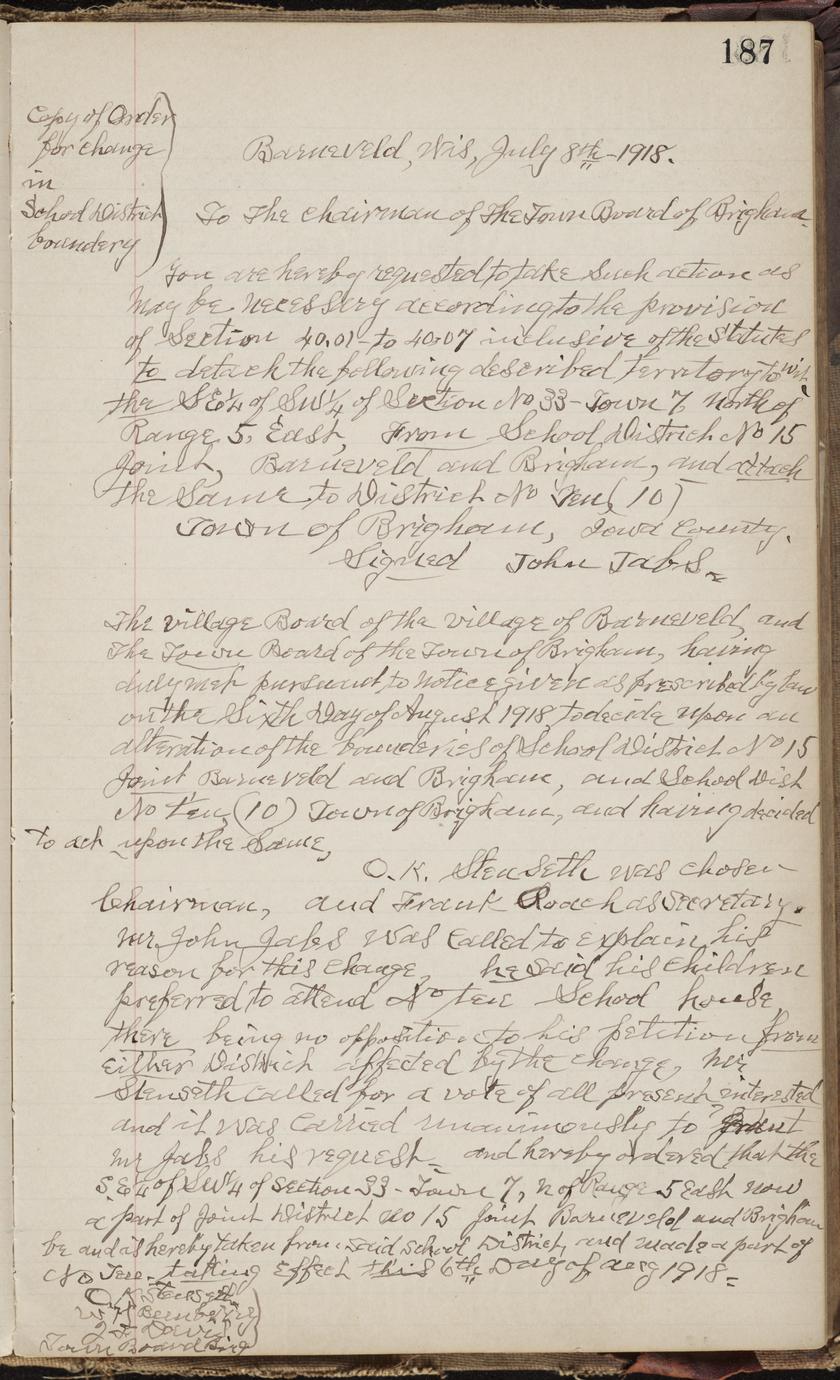 187
Copy of Order
for change
in
School District
boundery
Barneveld, Wis, July 8th - 1918.
To The Chairman of The Town Board of Brigham.
You are hereby requested to take Such action as
may be necessary according to the provision
of Section 40.01 - to 40.07 inclusive of the Statutes
to detach the following described Territory to wit
the SE1/4 of SW1/4 of Section No 33 - Town 7 North of
Range 5, East, From School District No 15
Joint, Barneveld and Brigham, and attach
the Same to District No Ten (10)
Town of Brigham, Iowa County.
Signed John Jabs.
The village Board of the village of Barneveld, and
The Town Board of the Town of Brigham, having
duly met pursuant to notice given as prescribed by law
on the Sixth Day of August 1918 to decide upon an
alteration of the bounderies of School District No 15
Joint Barneveld and Brigham, and School Dist
No Ten (10) Town of Brigham, and having decided
to act upon the Same,
O.K. Stenseth was chosen
Chairman, and Frank Roach as Secretary.
Mr. John Jabs was called to explain his
reason for this change, he said his children
preferred to attend No ten School house
there being no opposition to his petition from
either District affected by the change, Mr
Stenseth called for a vote of all present interested
and it was carried unanimously to grant
Mr Jabs his request - and hereby ordered that the
S.E1/4 of SW1/4 of Section 33 - Town 7, N of Range 5 East now
a part of Joint District No 15 Joint Barneveld and Brigham
be and is hereby taken from said School District, and made a part of
No Ten - taking Effect this 6th Day of Aug 1918 -
O.K. Stenseth
Town Board